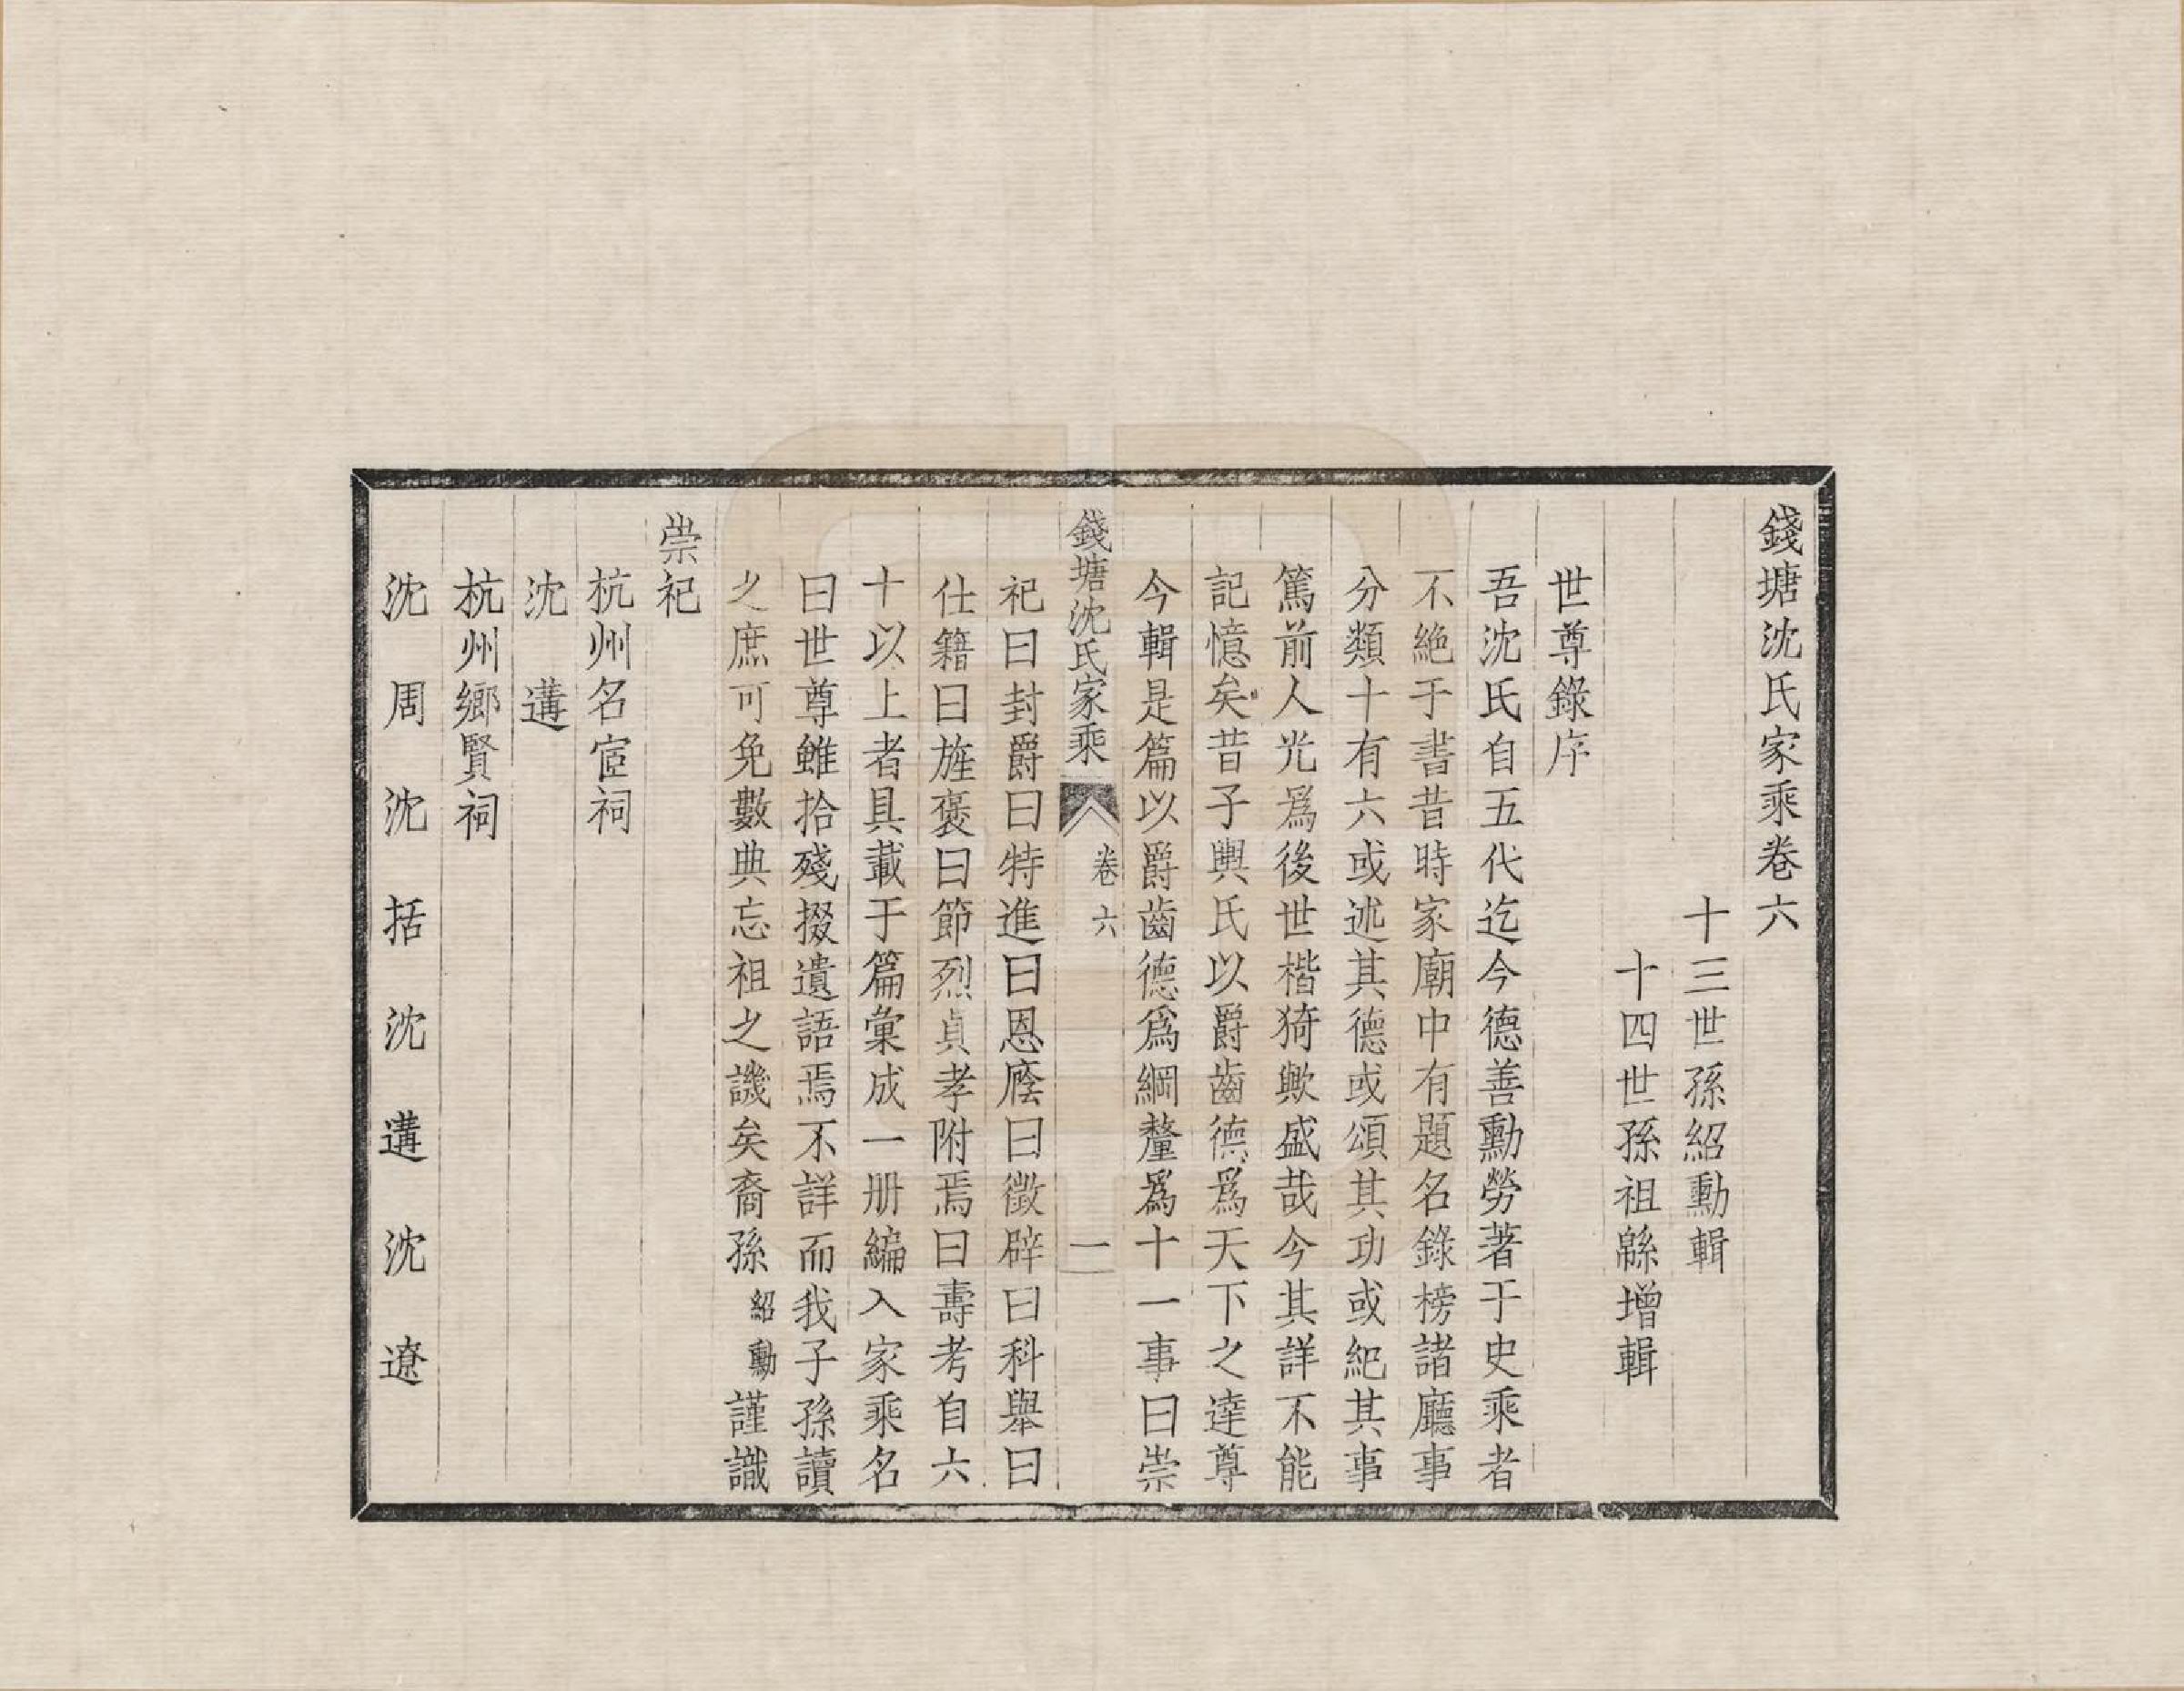 錢塘沈氏家乘卷六
十三世孫紹勳輯
十四世孫祖緜增輯
世尊錄序
吾沈氏自五代迄今德善勳勞著于史乘者
不絕于書昔時家廟中有題名錄榜諸廳事
分類十有六或述其德或頌其功或紀其事
篤前人光爲後世楷猗歟盛哉今其詳不能
記憶矣昔子輿氏以爵齒德爲天下之達尊
今輯是篇以爵齒德爲綱釐爲十一事曰崇
錢塘沈氏家乘 卷六 一
祀曰封爵曰特進曰恩廕曰徵辟曰科舉曰
仕籍曰旌褒曰節烈貞孝附焉曰壽考自六
十以上者具載于篇彙成一册編入家乘名
曰世尊雖拾殘掇遺語焉不詳而我子孫讀
之庶可免數典忘祖之譏矣裔孫紹勳謹識
崇祀
杭州名宦祠
沈遘
杭州鄉賢祠
沈周 沈括 沈遘 沈遼